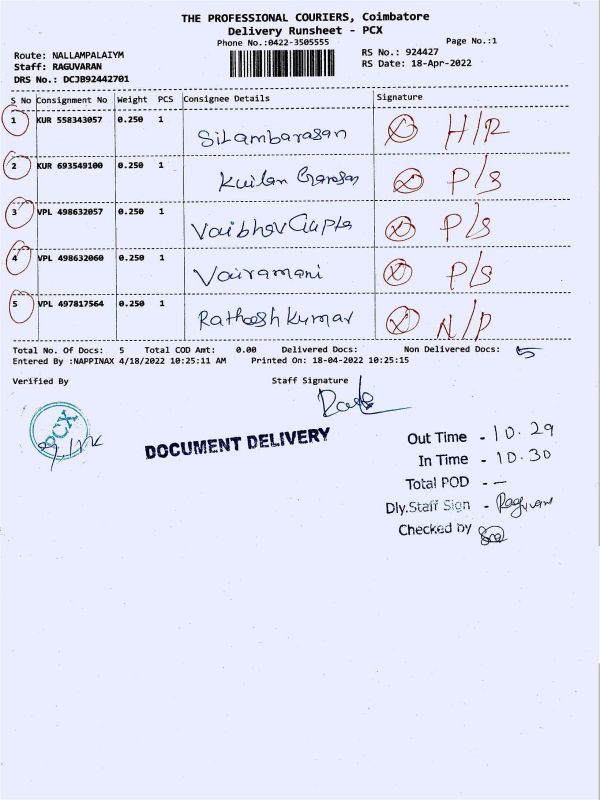 THE PROFESSIONAL COURIERS, Coimbatore
Delivery Runsheet - PCX
Phone No.:0422-3505555
Page No.:1
Route: NALLAMPALAIYM
RS No.: 924427
Staff: RAGUVARAN
RS Date: 18-Apr-2022
DRS No.: DCJB92442701
S No Consignment No Weight PCS Consignee Details Signature
1 KUR 558343057 0.250 1 Silambarasan H/R
2 KUR 693549100 0.250 1 P/S
3 VPL 498632057 0.250 1 Vaibhav Gupta P/S
4 VPL 498632060 0.250 1 Vairamani P/S
5 VPL 497817564 0.250 1 Ratheesh Kumar N/P
Total No. Of Docs: 5 Total COD Amt: 0.00 Delivered Docs: Non Delivered Docs: 5
Entered By :NAPPINAX 4/18/2022 10:25:11 AM Printed On: 18-04-2022 10:25:15
Verified By Staff Signature
PCX
DOCUMENT DELIVERY
Out Time - 10.29
In Time - 10.30
Total POD - -
Dly.Staff Sign - Raguvaran
Checked by